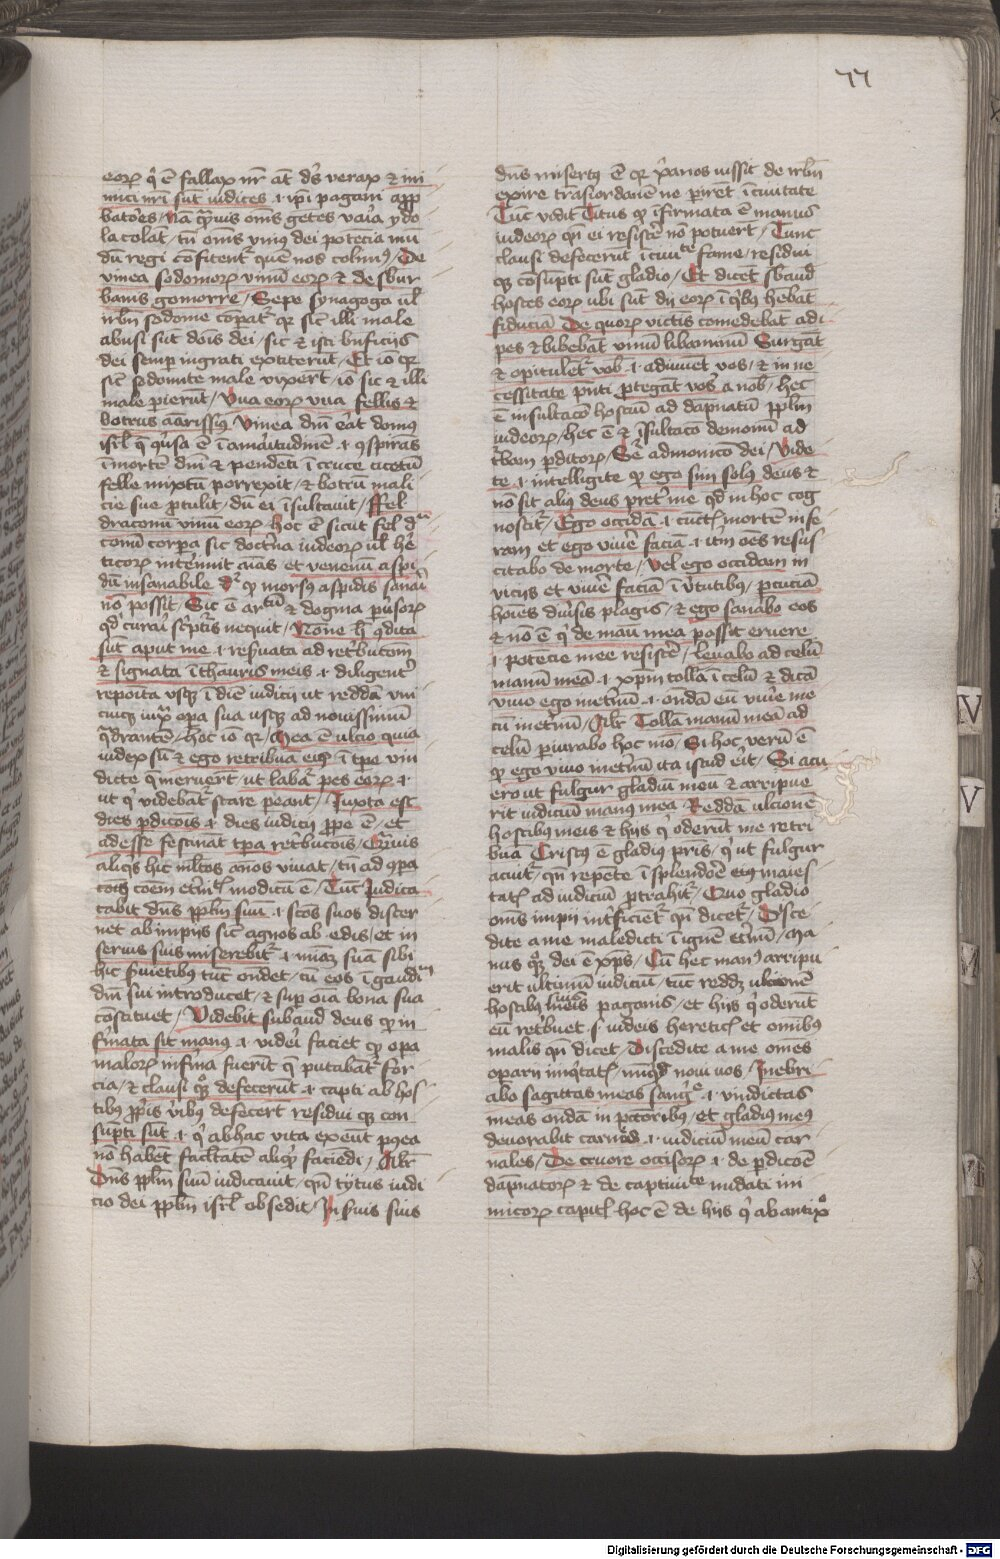 77
eorꝝ qͥ ē fallax nr̄ aūt dꝰ verax ⁊ ini
mici nr̄i sūt iudices .i. ip̄i pagani app
batōes / Nā qͣmuis om̄s gētes vaīa ydo
la colāt / tn̄ om̄s vniꝰ dei potēcia mū
dū regi cōfitent̄ quē nos colimꝰ / De
vinea sodomorꝝ vinū eorꝝ ⁊ de sbur
banis gomorre / Sepe synagoga vl̄
irlm̄ sodome cōpat̄ꝛ qꝛ sic̄ illi male
abusi sūt donīs dei / sic ⁊ isti bn̄ficijs
dei semp ingrati extiterūt / Et iō qꝛ
sic̄ sodomite male vixert̄ / iō sic ⁊ illi
male perierūt / Vua eorꝝ vua fellis ⁊
botrus amarissīꝰ Vinea dm̄ erāt domus
isrl̄ q̄ qͥuersa ē ī amaritudinē .i. ꝯspiras
ī mortē dm̄ ⁊ pendēti ī cruce acetū
felle mixtū porrexit / ⁊ botrū mali
cie sue ꝓtulit / dū ei īsultauit / Fel
draconū vinū eorꝝ hoc ē sicut fel dͣ
conū corpa sic doctͥna iudeorꝝ vl̄ he
ticorꝝ intērimit aīas et venenū aspi
dū insanabile dꝛ qꝛ morsꝰ aspidis sanaī
nō possit / Sic ē artū ⁊ dogma pursorꝝ
qd̄ curari sc̄ptis nequit / Nōne h̄ ꝯdita
sūt aput me .i. resuata ad retͥbucōm
⁊ signata ī thauris meis .i. diligenter
reposita vsqꝫ ī diē iudicij vt reddā vni
cuiqꝫ iuxͣ opa sua vsqꝫ ad nouissimū
qͣdrantē / hoc iō qꝛ / Mea ē ulcio quia
iudex sū ⁊ ego retribuā eis ī tpe vin
dicte qͣ meruerūt vt labat̄ pes eorꝝ .i.
ut qͥ videbāt̄ stare pereant / Iuxta est
dies ꝑdicōis .i. dies iudicij ꝓpe ē / et
adesse festinant tpra retͥbucōis / Quīuis
aliqͥs hic ml̄tos anos viuat / tn̄ ad ꝯpa
cōēs coēm et̄nīt modicū ē / Tūc Iudica
cabit dn̄s pplm̄ suū .i. sc̄os suos discer
net ab impijs sic̄ agnos ab edis / et in
seruis suis miserebit̄ .i. mīam suā sibi
hic suīetibꝰ tūc ondet / cū eos ī gaudiū
dm̄ sui introducet / ⁊ sup oīa bona sua
cōstituet / Videbit subaud̄ deus qꝫ in
firmata sit manꝰ .i. videri faciet qꝫ opa
malorꝝ infirma fuerīt q̄ putabāt̄ for
cia / ⁊ clausi qͦꝫ defecerūt .i. capti ab hos
tibꝰ ꝓprijs vͥbꝰ defecert̄ residui qꝫ con
sūpti sūt .i. qͥ ab hac vita exeūt pꝯea
nō habēt facl̄tatē aliqͥd faciēdi / Alr̄
Dn̄s pplm̄ suū iudicauit / qn̄ tytus iudi
cio dei pplm̄ isrl̄ obsedit / In suis suis
dn̄s misertꝰ ē qꝛ xͥanos iussit de irlm̄
exire trās iordanē ne ꝑiret ī ciuitate
Tūc vidit Titus qꝫ īfirmata ē manus
iudeorꝝ qn̄ ei resistē nō potuert̄ / Tunc
clausi defecerūt ī ciuite fame / residui
qꝫ cōsūpti sūt gladio / Et dicēt sbaud̄
hostes eorꝝ ubi sūt dij eorꝝ ī qͥbꝰ hēbāt
fiduciā De quorꝝ victis comedebāt adi
pes ⁊ bibebāt vinū libaminū Surgāt
⁊ opitulēt̄ vob̄ .i. adiuuēt vos / ⁊ in ne
cessitate p̄nti ꝓtegāt vos a nob̄ / hec
ē insultacō hostiū ad dāpnatū pplm̄
iudeorꝝ / hec ē ⁊ īsultacō demonū ad
tͥbam ꝑditorꝝ / Seq̄ admonicō dei / Vide
te .i. intelligite qꝫ ego sum solꝰ deus ⁊
nō sit aliꝰ deus pret̄ me qd̄ in hoc cog
noscit̄ / Ego occidā .i. cūctꝭ mortē infe
ram et ego viuē faciā .i. itm̄ oēs resus
citabo de morte / vel ego occidam in
vicijs et viuē faciā ī vͥtutibꝰ / ꝑcuciā
hoīes diuͥsis plagis / ⁊ ego sanabo eos
⁊ nō ē qͥ de manu mea possit eruere
.i. potencie mee resistē / leuabo ad celū
manū meā .i. xpm̄ tollā ī celū ⁊ dicā
viuo ego inetͥnū .i. ondā eū viuīe me
cū inetͥnū / Alr̄ Tollā manū meā ad
celū .i. iurabo hoc mō / Si hoc verū ē
qꝫ ego viuo inetͥnū ita istud erit / Si acu
ero ut fulgur gladiū meū ⁊ arripue
rit iudiciū manus mea Reddā ulcionē
hostibꝰ meis ⁊ hijs qͥ oderūt me retri
buā Cristus ē gladiꝰ pris / qͥ ut fulgur
acuit̄ qn̄ repēte ī splendōre eiꝰ maies
tatꝭ ad iudiciū ꝓtrahit̄ / Quo gladio
om̄s impij int̄ficient̄ qn̄ dicet̄ / Disce
dite a me maledicti ī ignē et̄nū / Ma
nus qͦꝫ dei ē xps̄ / Cū hec manꝰ arripu
erit ultimū iudiciū / tūc reddꝫ ulcionē
hostibꝰ suis paganis / et hijs qͥ oderūt
eū retͥbuet s̄ iudeis hereticꝭ et om̄ibꝰ
malis qn̄ dicet / Discedite a me om̄es
oparij inqͥtatꝭ nūqͣ noui uos / Inebri
abo sagittas meas sangͥe .i. vindictas
meas ondā in pccōribꝰ / et gladius meꝰ
deuorabit carnes .i. iudiciū meū car
nales / De cruore occisorꝝ .i. de ꝑdicōē
dāpnatorꝝ ⁊ de captiuite nudati ini
micorꝝ capitꝭ hoc ē de hijs qͥ ab antixͦ
IV
V
Digitalisierung gefördert durch die Deutsche Forschungsgemeinschaft - DFG